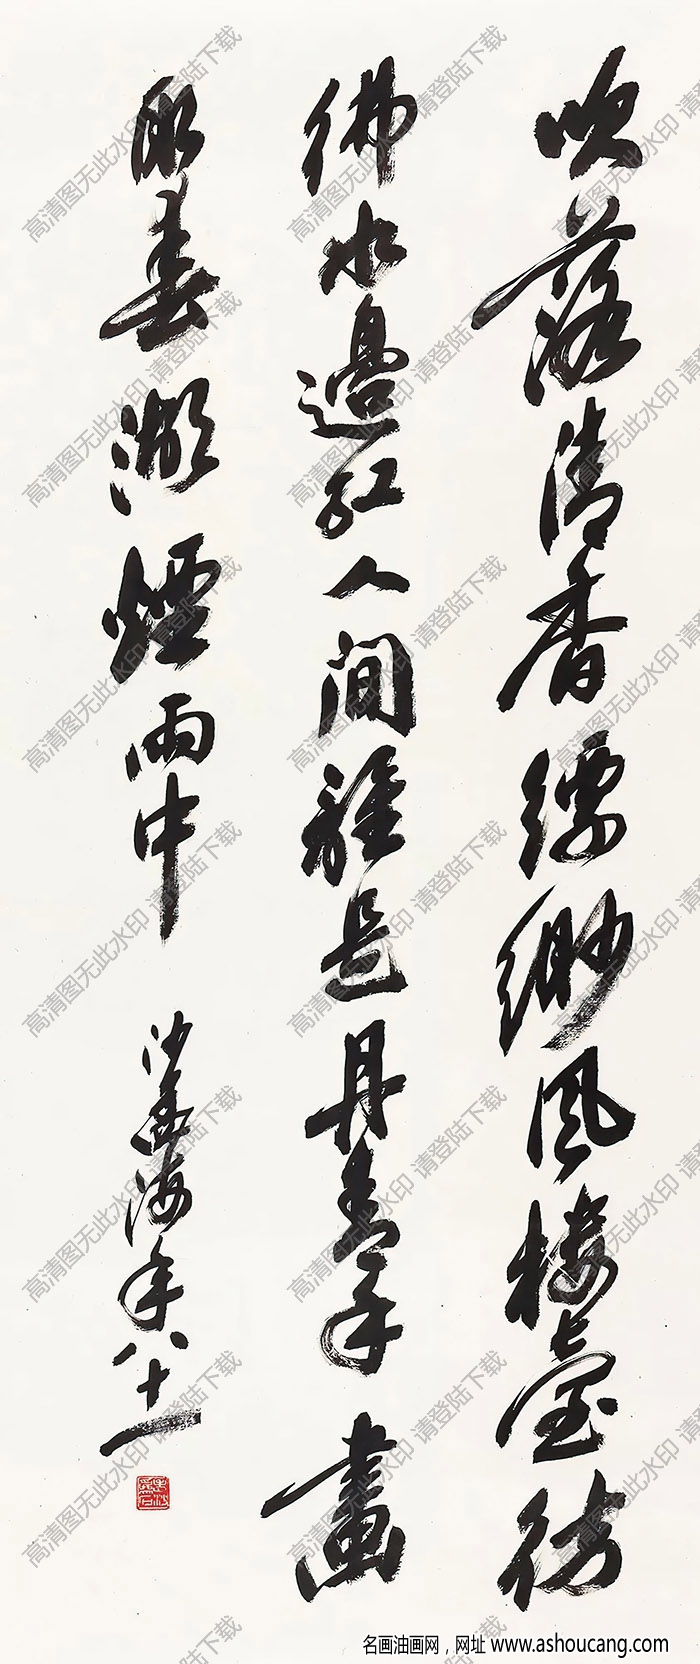 吹落清香縹緲風樓臺彷
彿水邊紅人間誰是丹青手畫
取春湖煙雨中
沙孟海年八十一
高清图无此水印 请登陆下载
名画油画网，网址 www.ashoucang.com